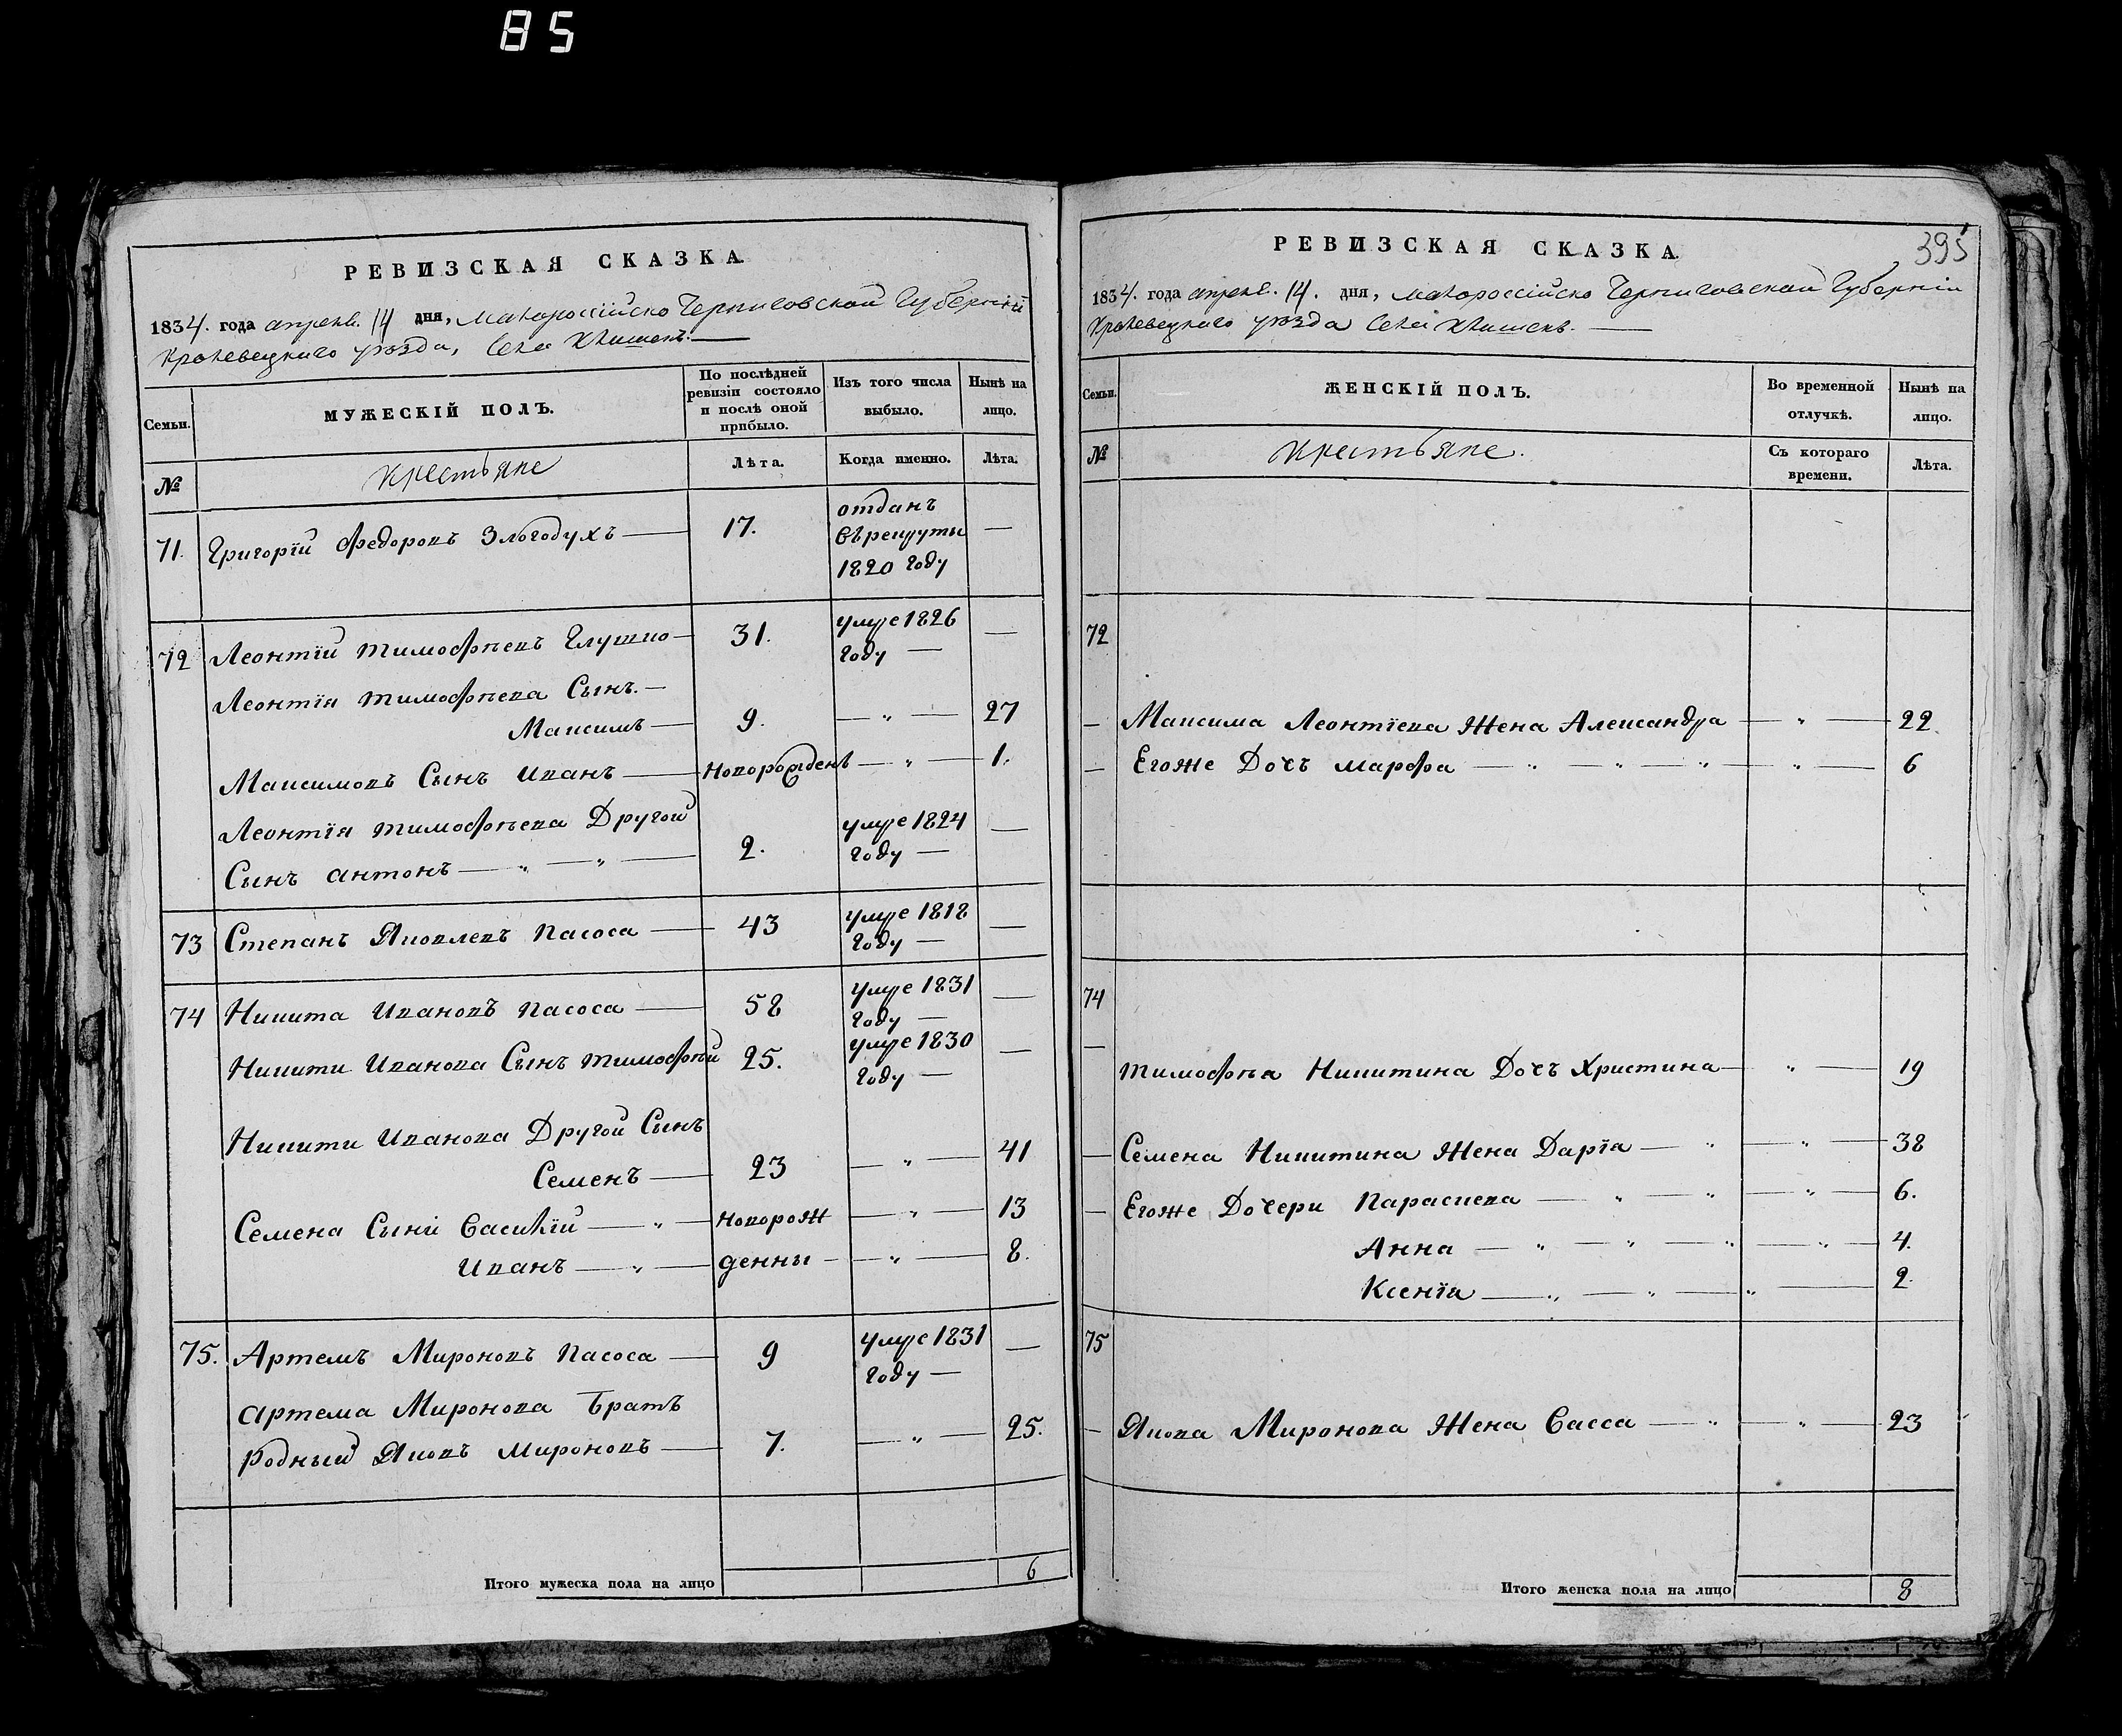 85
РЕВИЗСКАЯ СКАЗКА
1834. года апреля. 14 дня, Малороссійско Черниговской Губерніи
Кролевецкаго уѣзда, Села Клишекъ.
Семьи.
МУЖЕСКІЙ ПОЛЪ.
По послѣдней ревизіи состояло и послѣ оной прибыло.
Изъ того числа выбыло.
Нынѣ на лицо.
№
Крестьяне
Лѣта.
Когда именно.
Лѣта.
71. Григорій Федоровъ Злогодухъ — 17. отданъ въ рекруты 1820 году —
72 Леонтій Тимофѣевъ Глушко — 31. умре 1826 году —
Леонтія Тимофѣева Сынъ. —
Максимъ — 9. — „ — 27
Максимовъ Сынъ Иванъ — новорожденъ — „ — 1.
Леонтія Тимофѣева Другой
Сынъ Антонъ — „ — „ — 2. умре 1824 году —
73 Степанъ Яковлевъ Касоса — 43 умре 1818 году —
74 Никита Ивановъ Касоса — 58 умре 1831 году —
Никити Иванова Сынъ Тимофѣй 25. умре 1830 году —
Никити Иванова Другой Сынъ
Семенъ — 23 — „ — 41
Семена Сыни Василій — „ — новорож — „ — 13
Иванъ — „ — денны — „ — 8.
75. Артемъ Мироновъ Касоса — 9 умре 1831 году —
Артема Миронова Братъ
Родный Яковъ Мироновъ — 7. — „ — 25.
Итого мужеска пола на лицо 6
395
РЕВИЗСКАЯ СКАЗКА
1834. года апреля. 14. дня, Малороссійско Черниговской Губерніи
Кролевецкаго уѣзда Села Клишекъ. —
Семьи.
ЖЕНСКІЙ ПОЛЪ.
Во временной отлучкѣ.
Нынѣ на лицо.
№
Крестьяне.
Съ котораго времени.
Лѣта.
72
— Максима Леонтіева Жена Александра — „ — 22.
— Егоже Дочь Марфа — „ — „ — „ — „ — 6
74
—
Тимофѣа Никитина Дочь Христина — „ — 19
— Семена Никитина Жена Дарїа — „ — „ — 38
— Егоже Дочери Параскева — „ — „ — „ — 6.
Анна — „ — „ — „ — „ — 4.
Ксенїа — „ — „ — „ — 2.
75
— Якова Миронова Жена Васса — „ — „ — 23
Итого женска пола на лицо 8